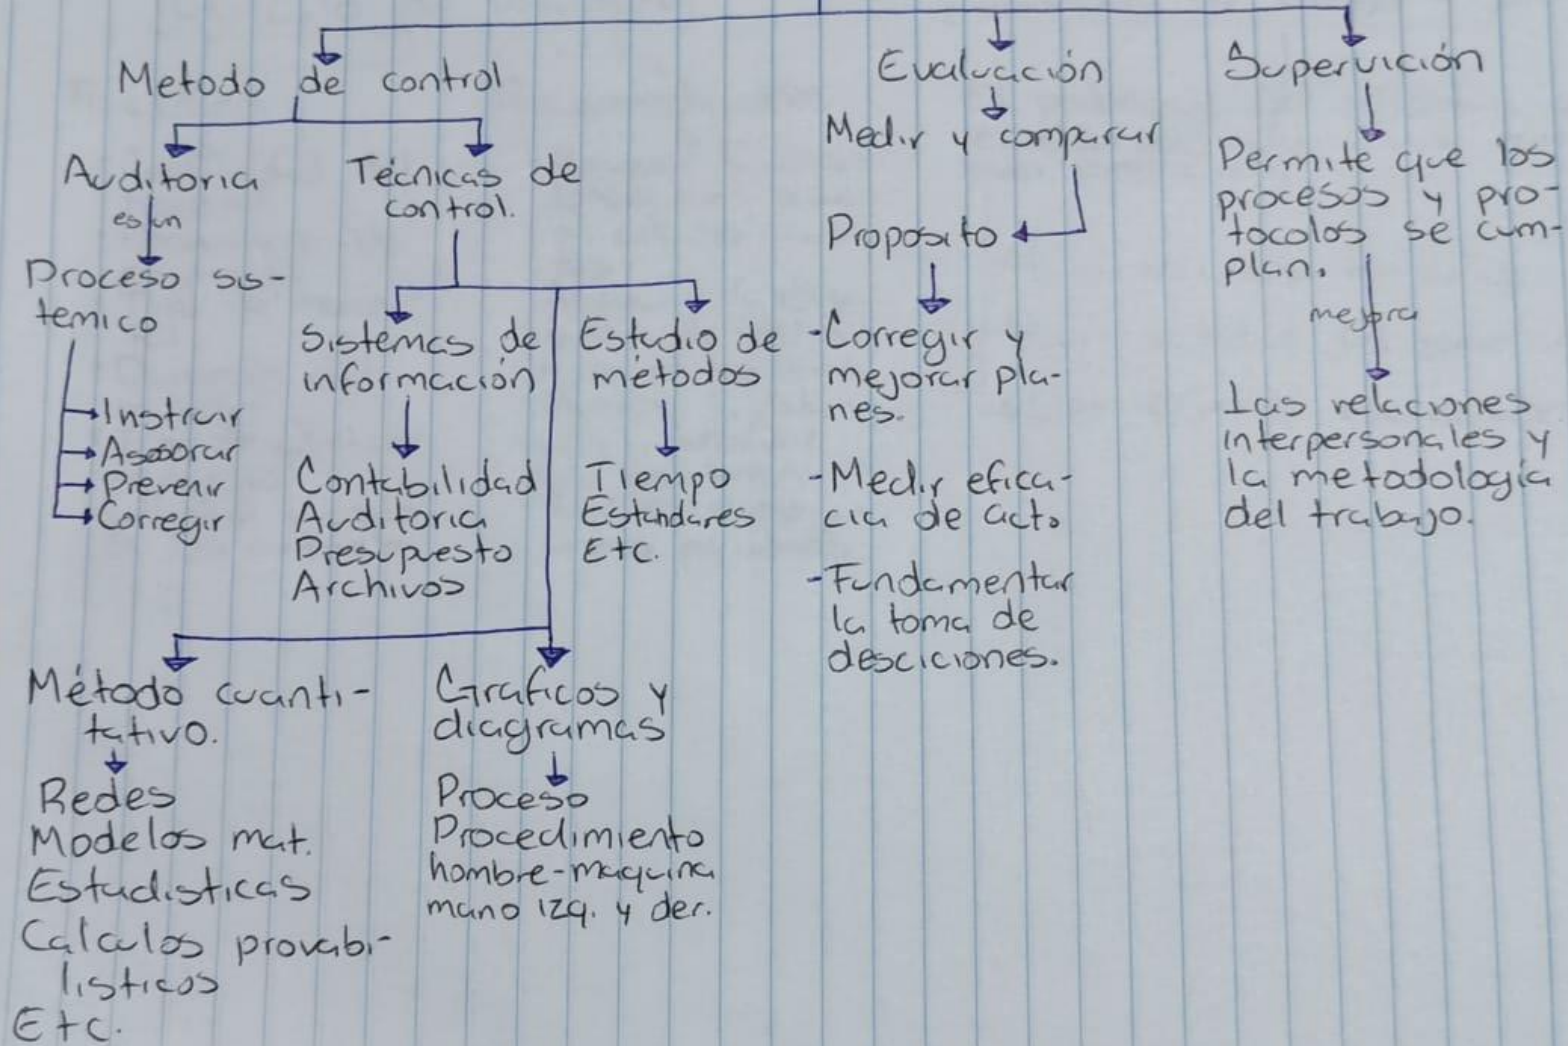 Metodo de control
Auditoria
es un
Proceso sis-
temico
Instruir
Asesorar
Prevenir
Corregir
Técnicas de
control.
Sistemas de
información
Contabilidad
Auditoria
Presupuesto
Archivos
Estudio de
métodos
Tiempo
Estandares
Etc.
Método cuanti-
tativo.
Redes
Modelos mat.
Estadisticas
Calculos provabi-
listicos
Etc.
Graficos y
diagramas
Proceso
Procedimiento
hombre-maquina
mano izq. y der.
Evaluación
Medir y comparar
Proposito
-Corregir y
mejorar pla-
nes.
-Medir efica-
cia de act.
-Fundamentar
la toma de
desciciones.
Supervición
Permite que los
procesos y pro-
tocolos se cum-
plan.
mejora
Las relaciones
interpersonales y
la metodologia
del trabajo.